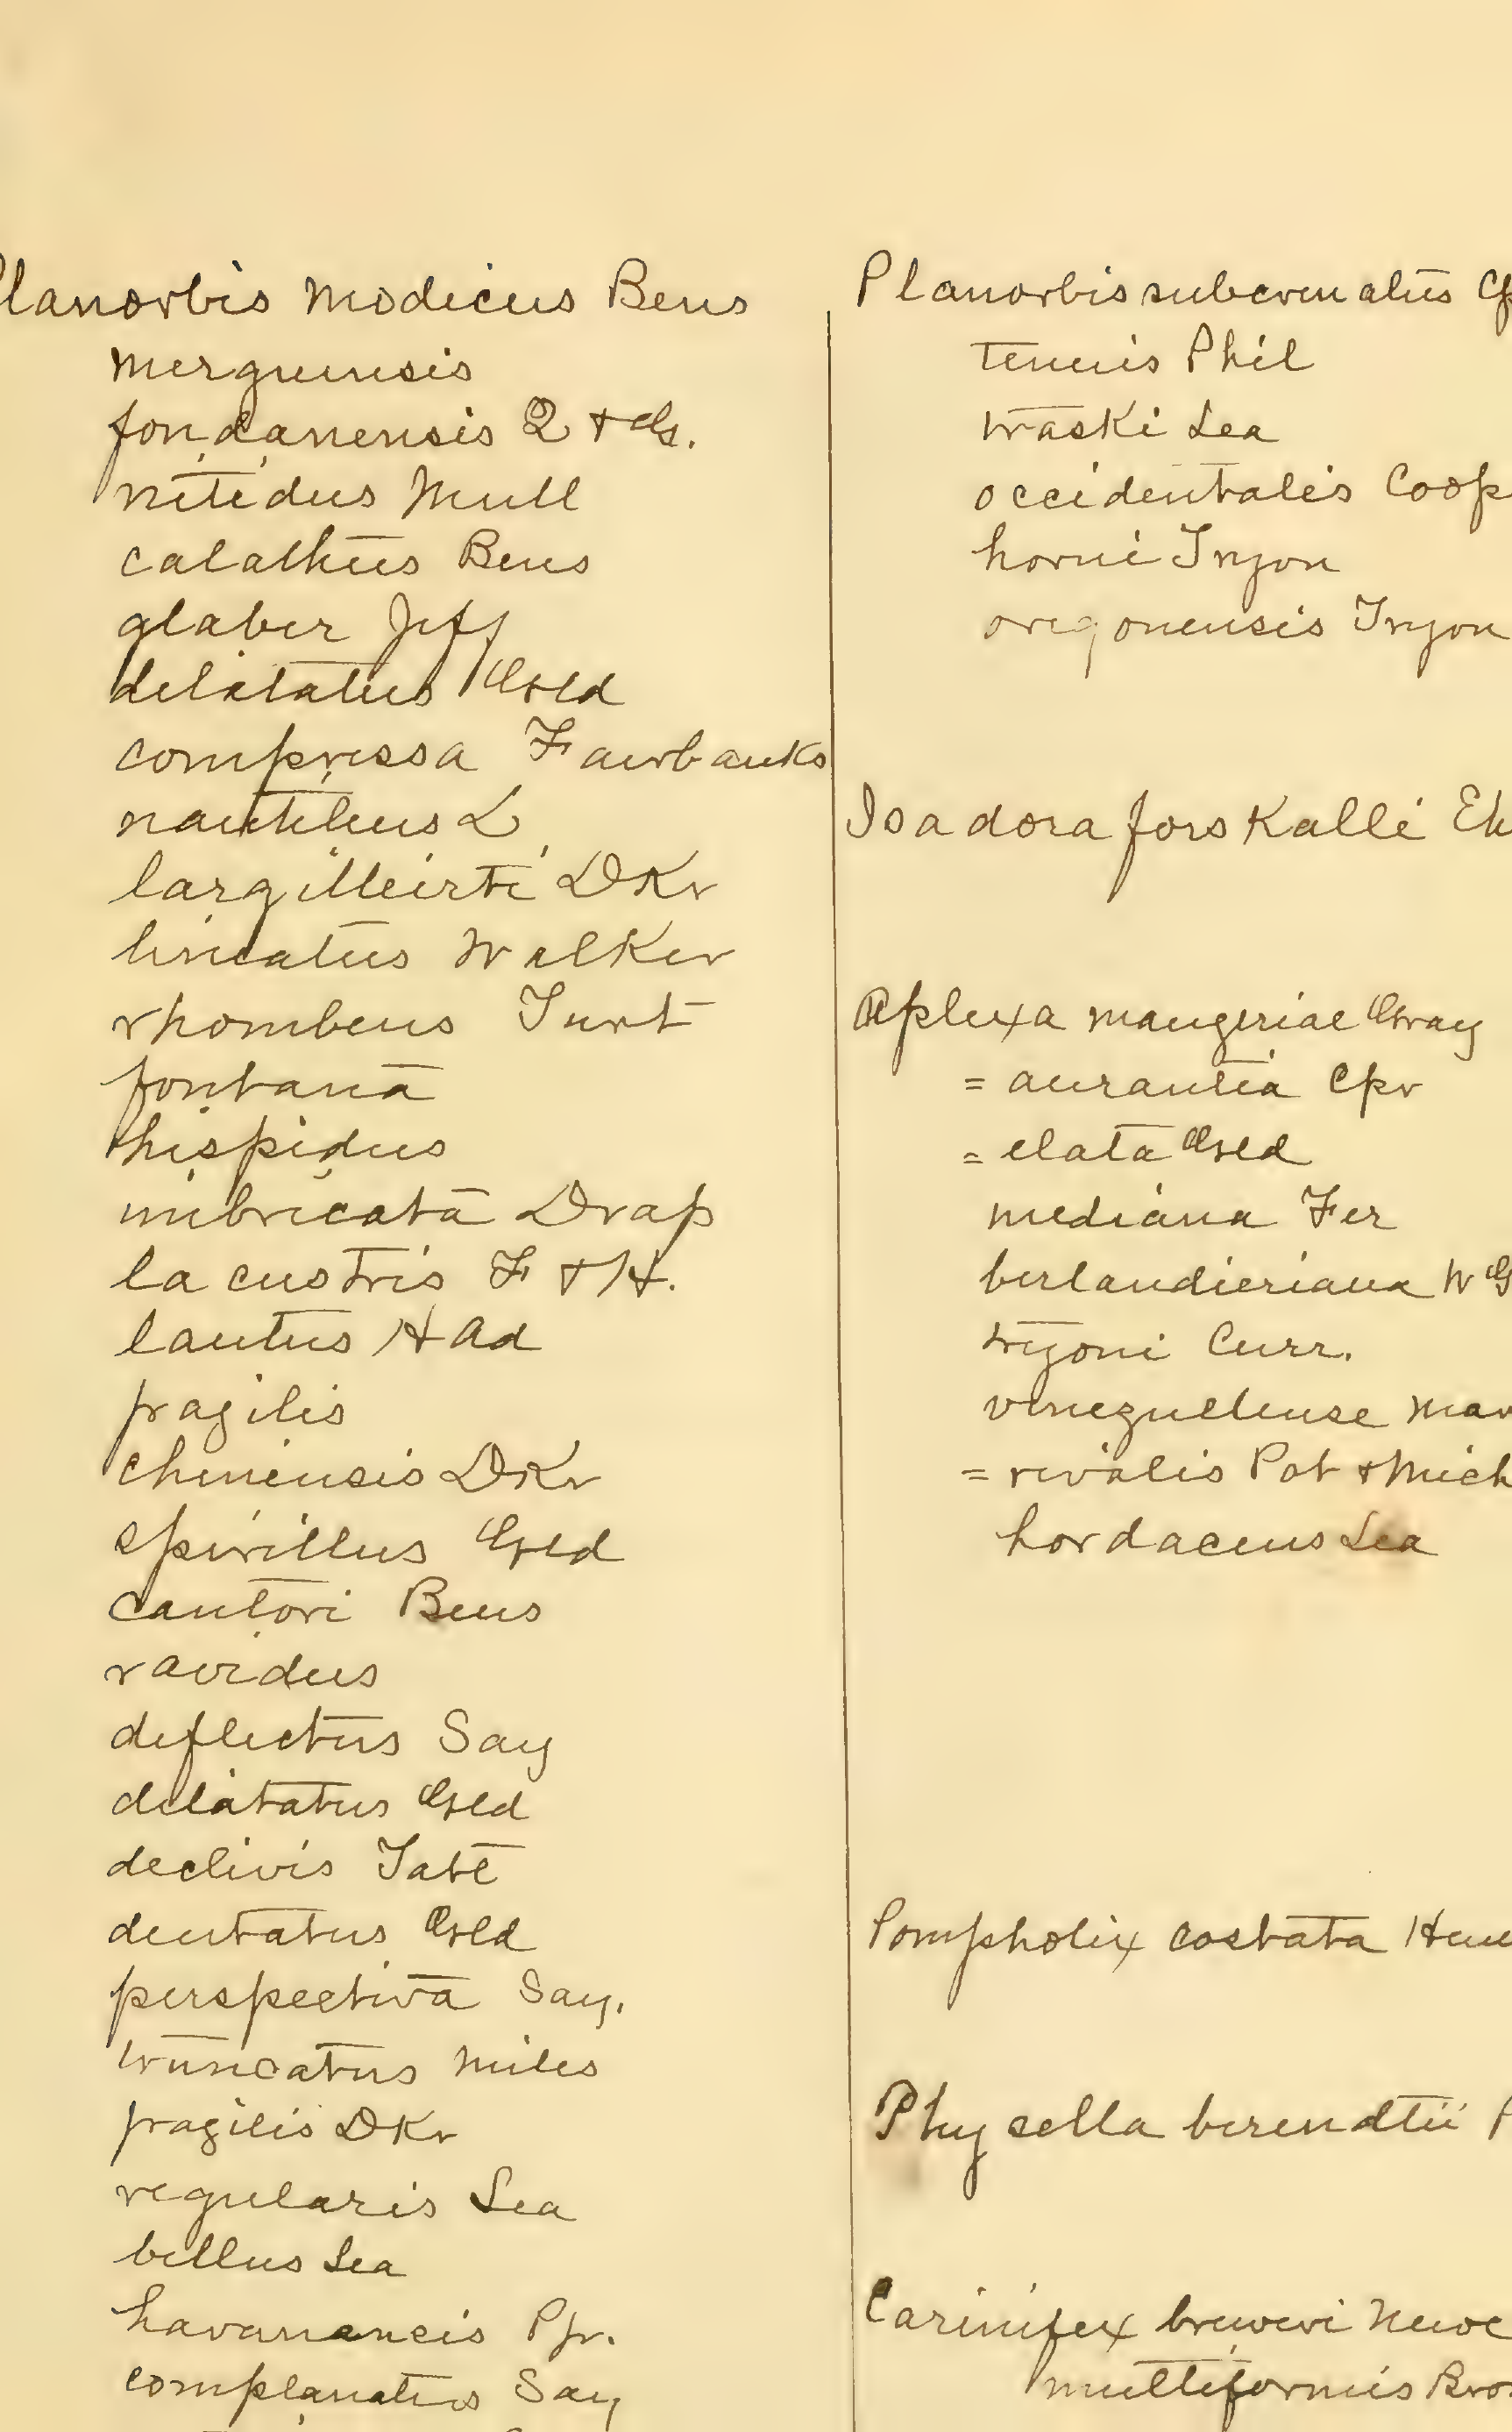 Planorbis modicus Bens
merguensis
fondanensis Q + G.
nitidus Mull
calathus Bens
glaber Jeff
dilatatus Gold
compressa Fairbanks
nautileus L
largillierti DKr
lineatus Walker
rhombeus Turt
fontana
hispidus
imbricata Drap
lacustris F + H.
lautus H Ad
fragilis
chinensis DKr
spirillus Gld
cantori Bens
ravidus
deflectus Say
dilatatus Gld
declivis Tate
dentatus Gld
perspectiva Say.
truncatus Miles
fragilis DKr
regularis Lea
bellus Lea
havanencis Pfr.
complanatus Say
Planorbis subcrenatus Cp
tenuis Phil
traski Lea
occidentalis Coop
horni Tryon
oregonensis Tryon
Isadora forskalli Eh
Aplexa maugeriae Gray
= aurantia Cpr
= elata Gld
mediana Fer
berlandieriana W G
tryoni Curr.
venezuelense Mar
= rivalis Pot + Mich
hordaceus Lea
Pompholix costata Hem
Physella berendtii P
Carinifex breweri Newc
multiformis Bro